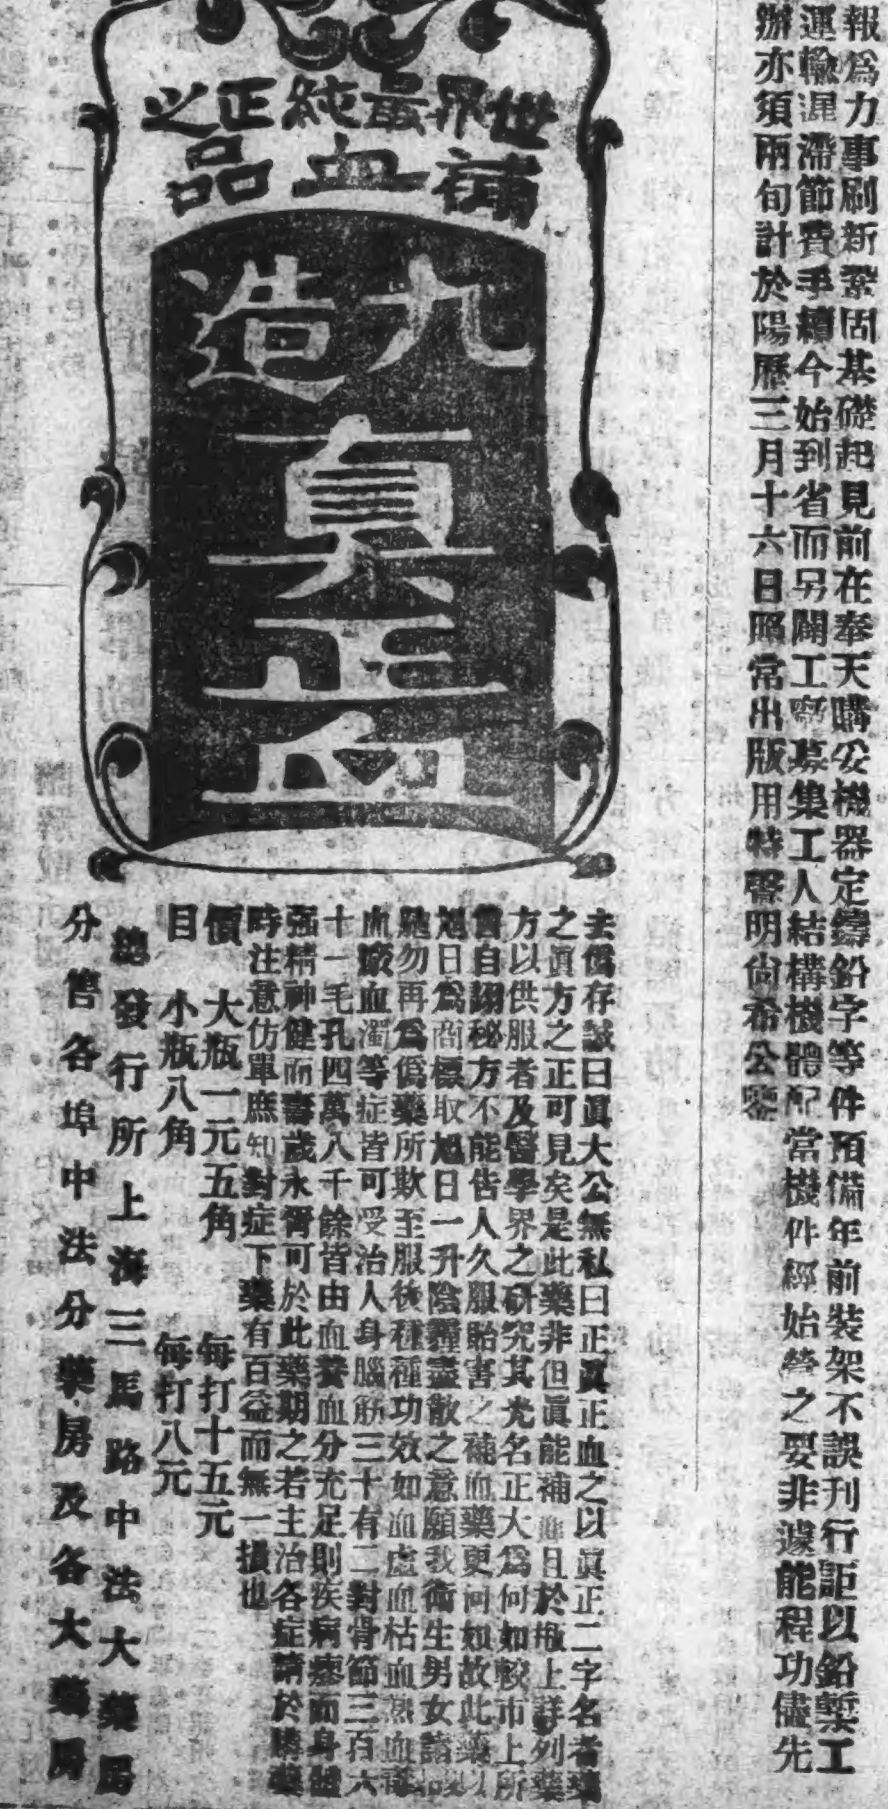 報爲力事刷新鞏固基礎起見前在奉天購妥機器定鑄鉛字等件預備年前裝架不誤刊行詎以鉛槧工
運輸遲滯節費手續今始到省而另闢工廠募集工人結構機體配當機件經始營之要非遽能程功儘先
辦亦須兩旬計於陽歷三月十六日照常出版用特聲明尙希公鑒
世界最純正之
補血品
九造
眞正血
去僞存誠曰眞大公無私曰正眞正血之以眞正二字名者藥
之眞方之正可見矣是此藥非但眞能補血且於瓶上詳列藥
方以供服者及醫學界之研究其光名正大爲何如較市上所
售自謝秘方不能告人久服貽害之補血藥更何如故此藥以
旭日爲商標取旭日一升陰霾盡散之意願我衛生男女諸
勿再爲僞藥所欺至服後種種功效如血虛血枯血熱血
血瘀血濁等症皆可受治人身腦筋三十有二對骨節三百六
十一毛孔四萬八千餘皆由血養血分充足則疾病瘳而身體
强精神健而壽歲永胥可於此藥期之若主治各症請於購藥
時注意仿單庶知對症下藥有百益而無一損也
價 大瓶一元五角 每打十五元
目 小瓶八角 每打八元
總發行所上海三馬路中法大藥房
分售各埠中法分藥房及各大藥房